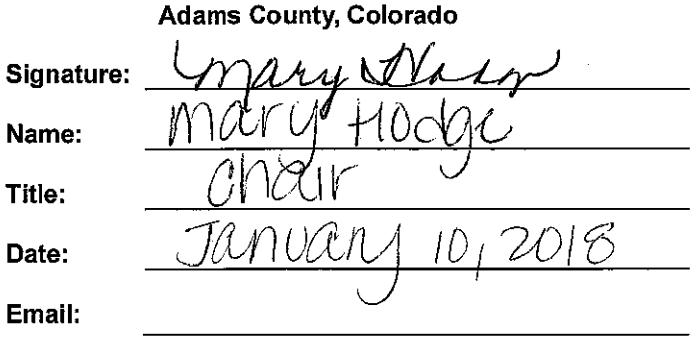 Adams County, Colorado
Signature: Mary Hodge
Name: Mary Hodge
Title: Chair
Date: January 10, 2018
Email: